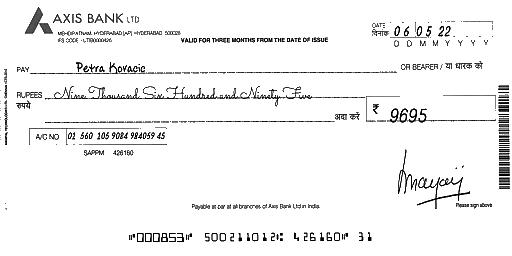 AXIS BANK LTD
MEHDIPATNAM, HYDERABAD (AP) HYDERABAD 500028
IFS CODE - UTIB0000426
VALID FOR THREE MONTHS FROM THE DATE OF ISSUE
DATE
दिनांक 06 05 22
D D M M Y Y Y Y
PAY Petra Kovacic OR BEARER / या धारक को
RUPEES Nine Thousand Six Hundred and Ninety Five
रुपये अदा करें ₹ 9695
A/C NO 01 560 105 9084 984059 45
SAPPM 426160
Please sign above
Payable at par at all branches of Axis Bank Ltd in India.
⑈000853⑈ 500211012⑆ 426160⑈ 31